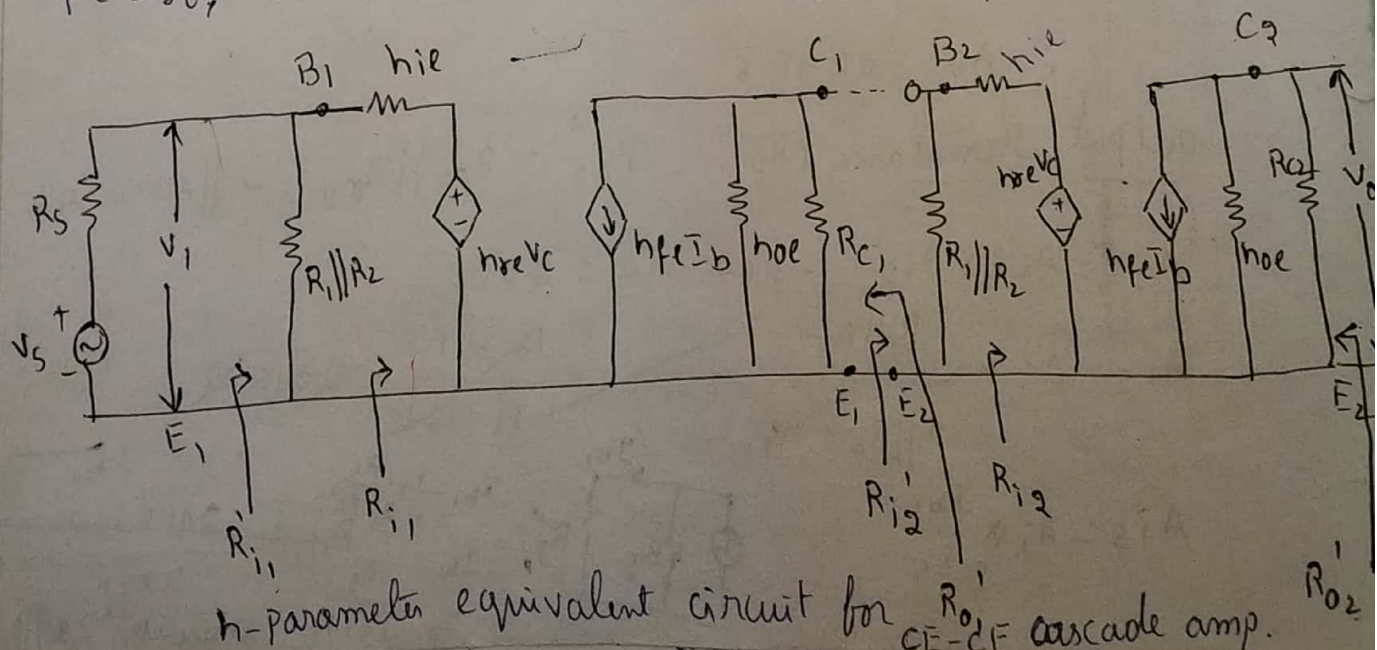 B1 hie
C1
B2 hie
C2
RS
V1
R1||R2
hrevc
hfeIb
hoe
RC1
R1||R2
hrevc
hfeIb
hoe
RC2
Vo
VS
+
-
E1
E1
E2
E2
Ri1'
Ri1
Ri2'
Ri2
Ro1'
Ro2'
h-parameter equivalent circuit for
CE-CE cascade amp.